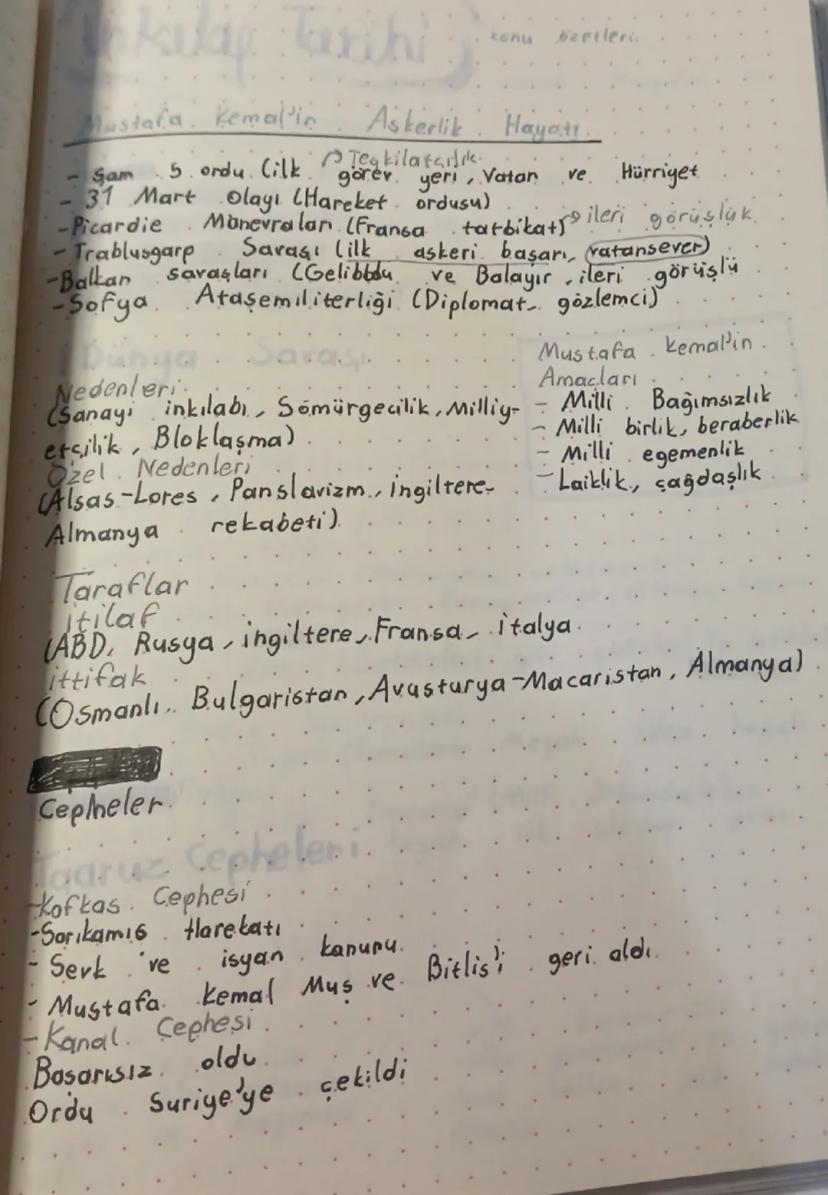 İnkılap Tarihi konu özetleri.
Mustafa Kemal'in Askerlik Hayatı
Teşkilatçılık
- Şam 5 ordu (ilk görev yeri, Vatan ve Hürriyet
- 31 Mart Olayı (Hareket ordusu)
-Picardie Manevraları (Fransa tatbikat) ileri görüşlük
- Trablusgarp Savaşı (ilk askeri başarı, vatansever)
-Balkan savaşları (Gelibolu ve Balayır, ileri görüşlü
-Sofya Ataşemiliterliği (Diplomat, gözlemci)
1 Dünya Savaşı
Nedenleri
(Sanayi inkılabı, Sömürgecilik, Milliy-
etçilik, Bloklaşma)
Özel Nedenleri
(Alsas-Lores, Panslavizm, ingiltere-
Almanya rekabeti)
Mustafa Kemal'in
Amaçları
- Milli Bağımsızlık
- Milli birlik, beraberlik
- Milli egemenlik
- Laiklik, çağdaşlık
Taraflar
itilaf
(ABD, Rusya, ingiltere, Fransa, italya
ittifak
(Osmanlı, Bulgaristan, Avusturya-Macaristan, Almanya)
Cepheler
Taaruz Cepheleri
-Kafkas Cephesi
-Sarıkamış Harekatı
- Sevk ve isyan kanunu
- Mustafa Kemal Muş ve Bitlis'i geri aldı
-Kanal Cephesi
Başarısız oldu
Ordu Suriye'ye çekildi